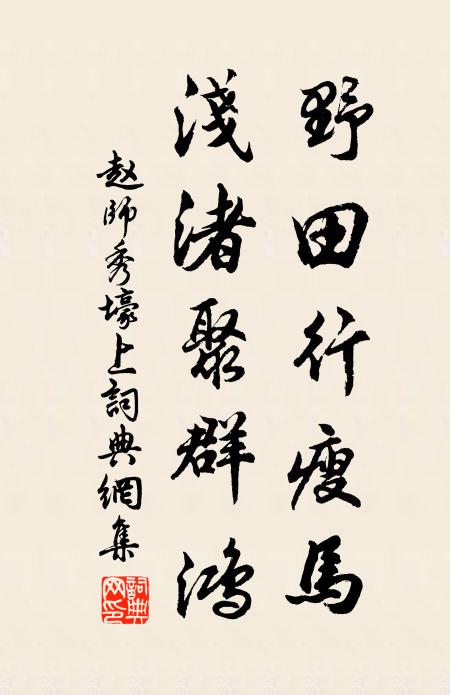 野田行瘦馬
淺渚聚群鴻
趙師秀壕上詞典網集
詞典網印